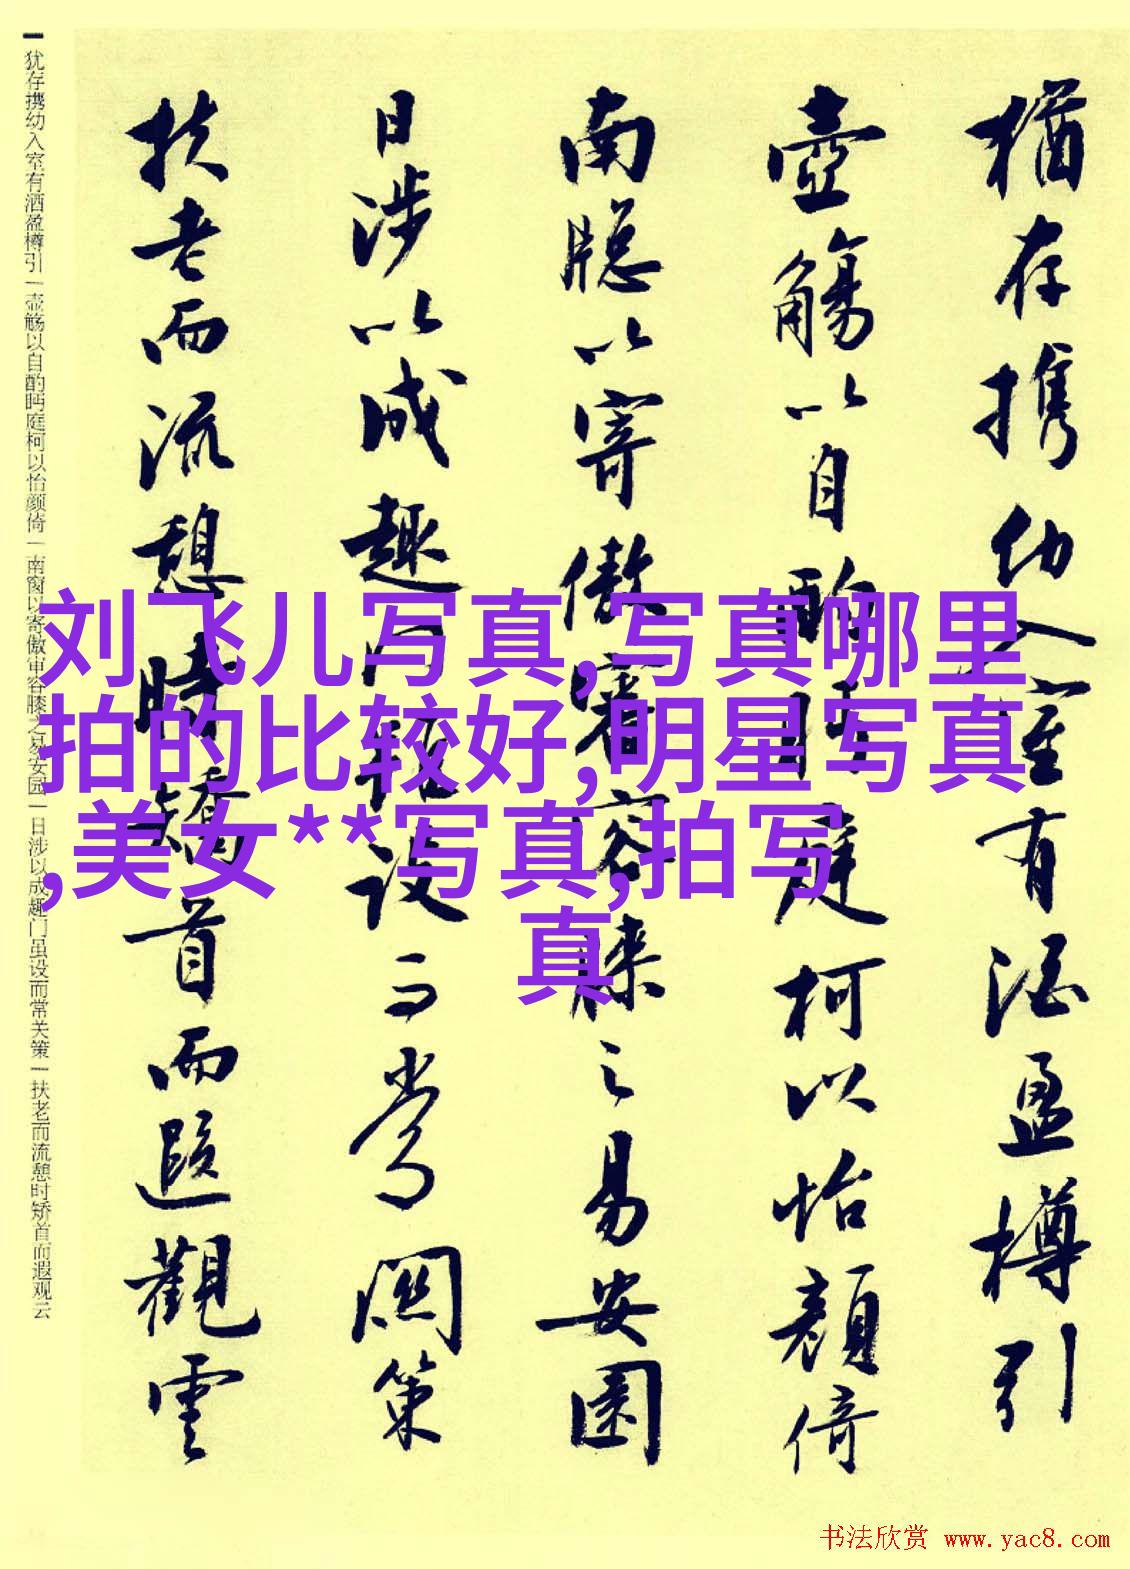 猶存携幼入室有酒盈樽引
壺觴以自酌眄庭柯以怡顔倚
南牕以寄傲審容膝之易安園
日涉以成趣門雖設而常關策
扶老而流憩時矯首而遐觀雲
犹存携幼入室有酒盈樽引|壶觞以自酌眄庭柯以怡颜倚|南窗以寄傲审容膝之易安园|日涉以成趣门虽设而常关策|扶老而流憩时矫首而遐观云
刘飞儿写真,写真哪里
拍的比较好,明星写真
,美女**写真,拍写
真
书法欣赏 www.yac8.com